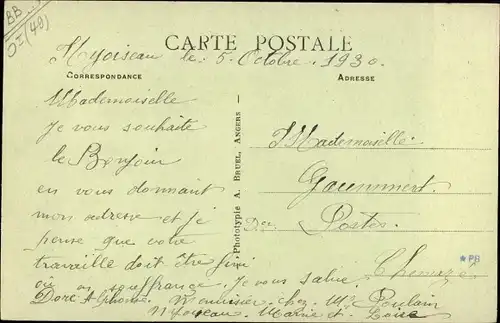 BB
OI (49)
CARTE POSTALE
Nyoiseau le: 5 Octobre 1930.
CORRESPONDANCE
ADRESSE
Mademoiselle
je vous souhaite
le Bonjour
en vous donnant
mon adresse et je
pense que votre
travaille doit être fini
ou en souffrange. je vous salue.
Doré Alphonse, Monnisier chez Mr Poulain
Nyoiseau. Maine-et-Loire
Phototypie A. BRUEL, ANGERS
Mademoiselle
Postes.
*PB